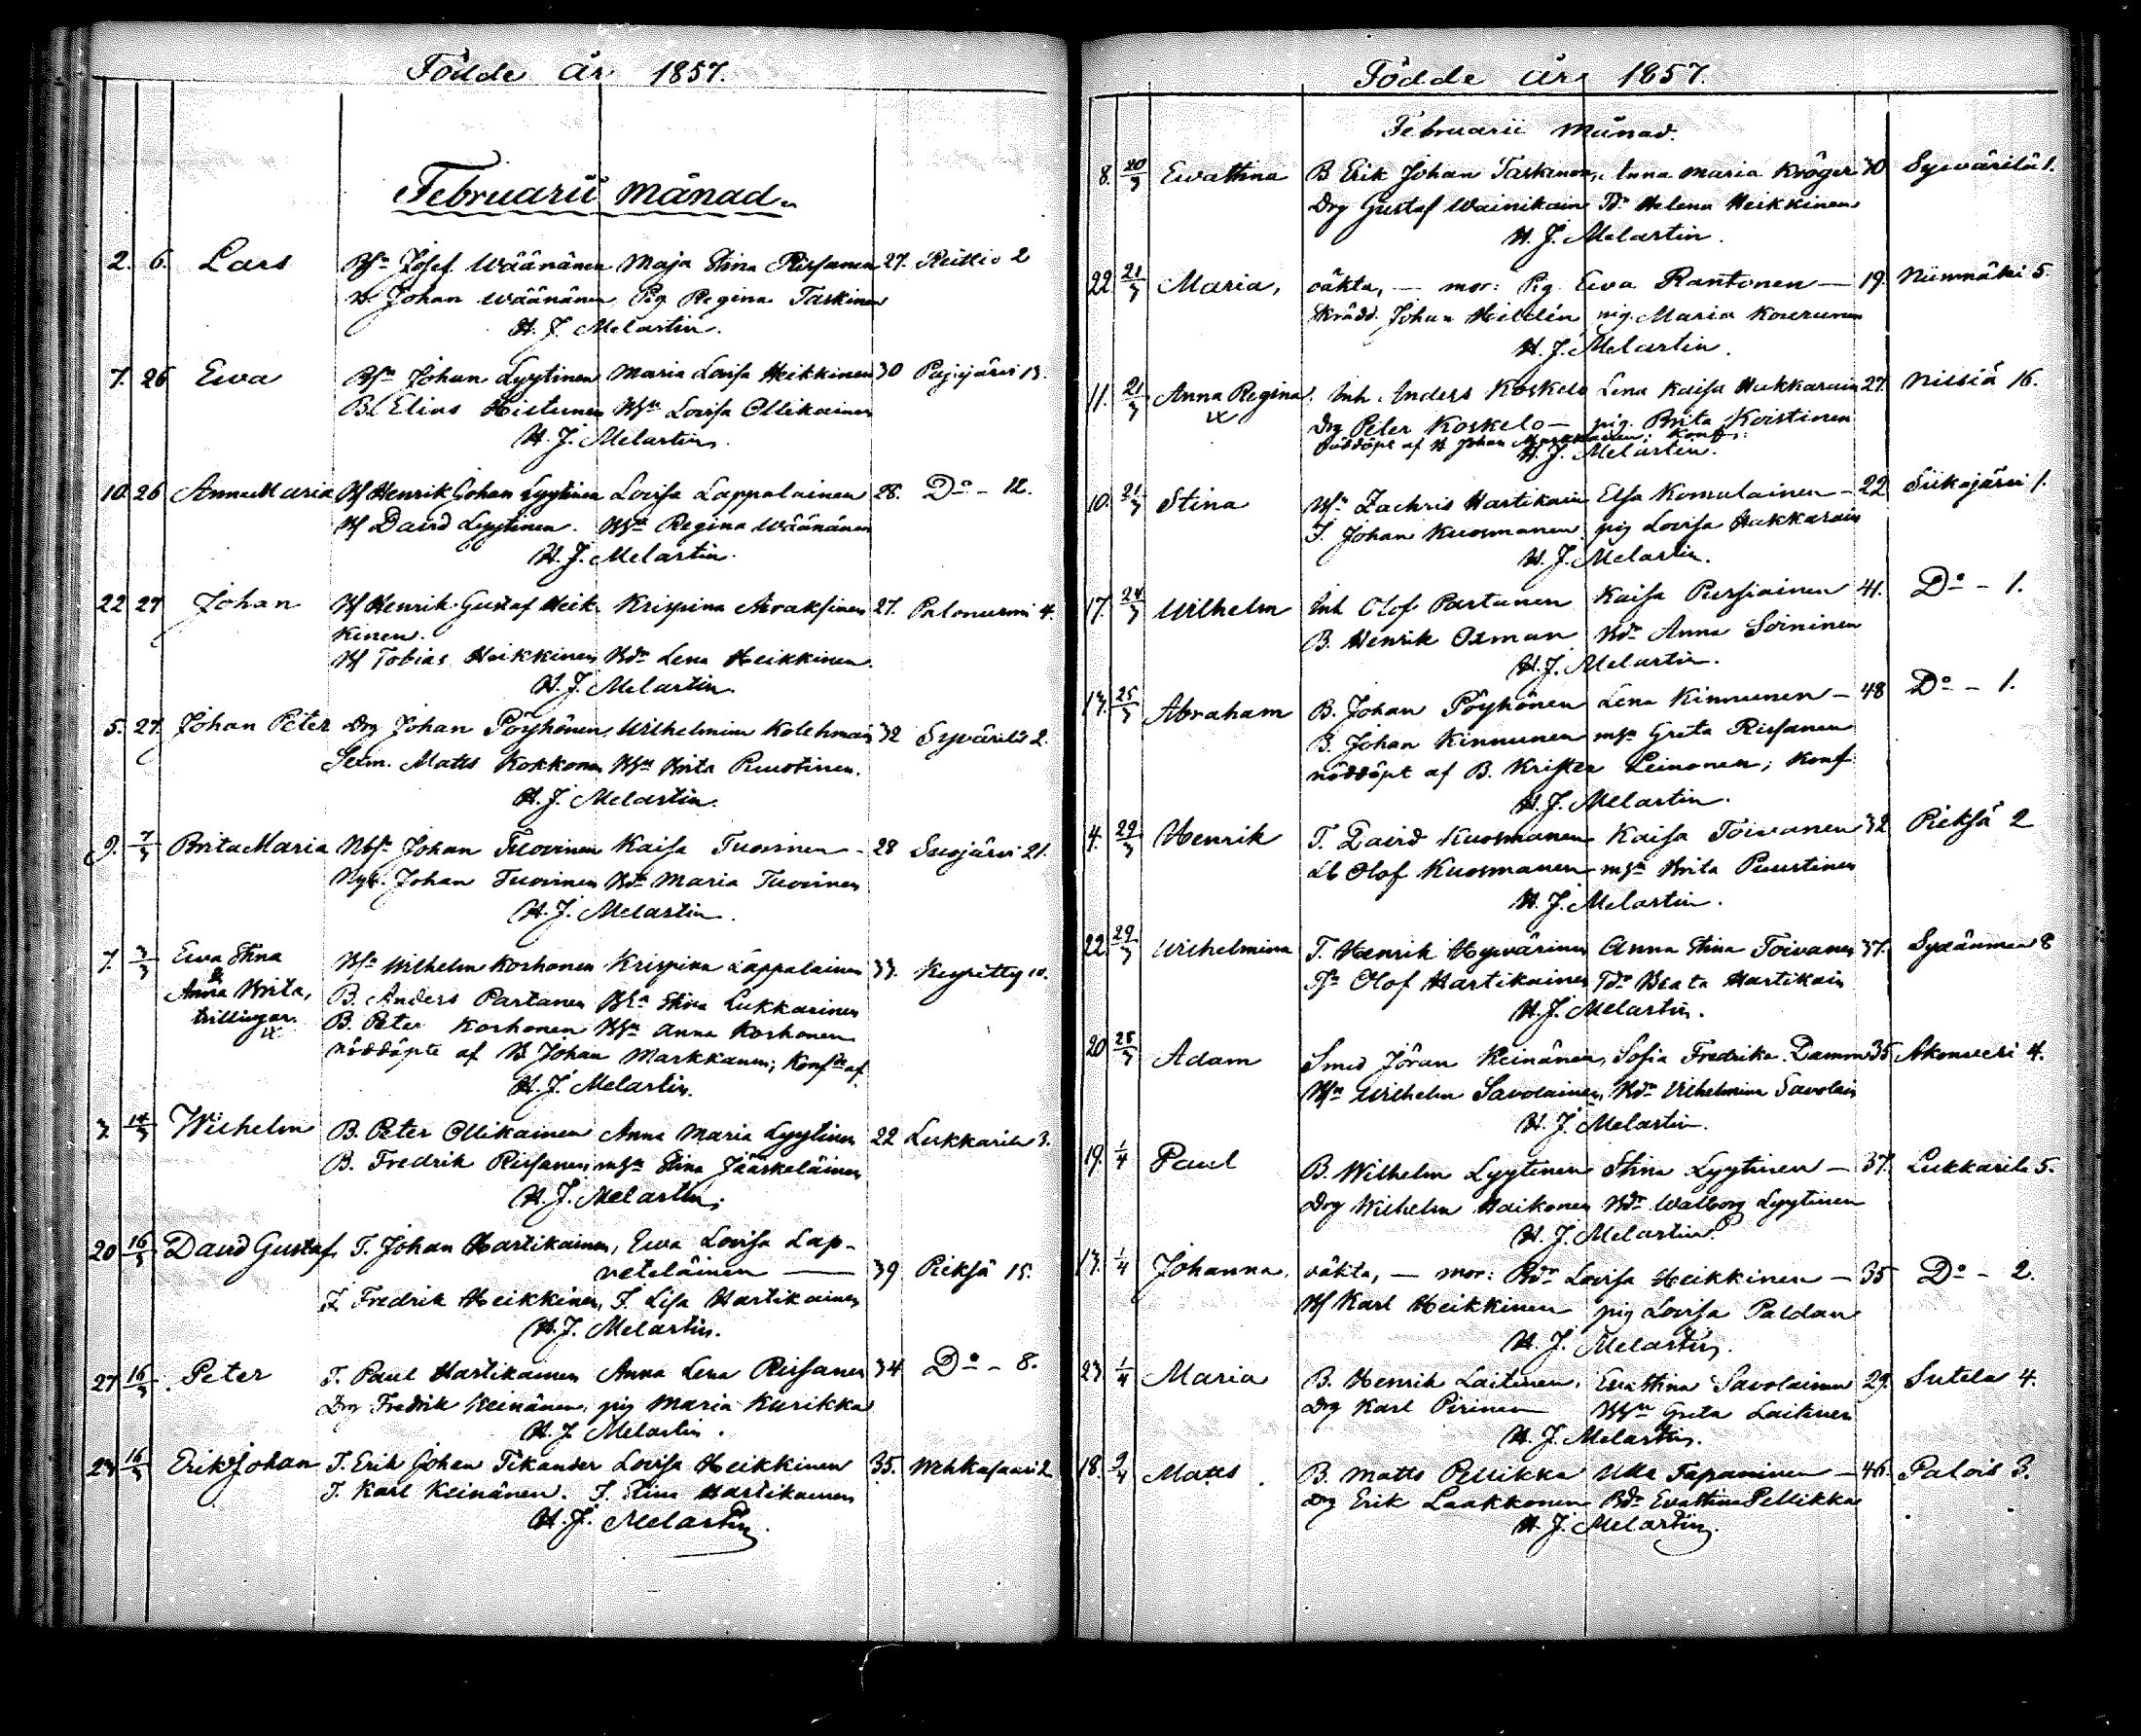 Födde år 1857.
Februarii månad.
2. 6. Lars Bsn Josef Wäänänen Maja Stina Rissanen 27. Reittio 2
B Johan Wäänänen Pig Regina Taskinen
H. J. Melartin.
7. 26 Ewa Bsn Johan Lyytinen Maria Lovisa Heikkinen 30 Pajujärvi 13.
B Elias Histunen Lovisa Ollikainen
H. J. Melartin.
10. 26 Anna Maria Henrik Johan Lyytinen Lovisa Lappalainen 28. Do - 12.
David Lyytinen. Regina Wäänänen
H. J. Melartin.
22 27 Johan Henrik Gustaf Heik- Krispina Airaksinen 27. Palonurmi 4.
kinen.
Tobias Heikkinen Lena Heikkinen.
H. J. Melartin.
5. 27. Johan Peter Drg Johan Pöyhönen, Wilhelmina Kolehmain 32 Sywärilä 2.
Matts Kokkonen Brita Ruustinen.
H. J. Melartin.
9. 7/3 Brita Maria Johan Tuovinen Kaisa Tuovinen - 28 Suojärvi 21.
Johan Tuovinen Maria Tuovinen
H. J. Melartin.
7. 3/3 Ewa Stina
& Wilhelm Korhonen Krispina Lappalainen 33. Keyritty 10.
Anna Brita, B. Anders Partanen Stina Lukkarinen
trillingar. B. Peter Korhonen Anna Korhonen
nöddöpte af B Johan Markkanen; Konfde af
H. J. Melartin.
3. 14/3 Wilhelm B. Peter Ollikainen Anna Maria Lyytinen 22 Lukkarila 3.
B. Fredrik Rissanen Stina Jääskeläinen
H. J. Melartin.
20 16/3 David Gustaf T. Johan Hartikainen, Ewa Lovisa Lap-
veteläinen — 39 Pieksä 15.
T. Fredrik Heikkinen, T. Lisa Hartikainen
H. J. Melartin.
27 16/3 Peter T. Paul Hartikainen Anna Lena Rissanen 34 Do - 8.
Drg Fredrik Keinänen, pig Maria Kurikka
H. J. Melartin.
23 16/3 Erik Johan T. Erik Johan Tikander Lovisa Heikkinen 35. Wehkasaari 2
T. Karl Keinänen. T. Stina Hartikainen
H. J. Melartin.
Födde år 1857.
Februarii månad.
8. 20/3 Ewastina B Erik Johan Taskinen, Anna Maria Kröger 30 Sywärilä 1.
Drg Gustaf Wainikain Helena Heikkinen
H. J. Melartin.
22. 21/3 Maria, oäkta, — mor: Pig. Ewa Rantonen — 19. Niinimäki 5.
Skrädd. Johan Hildén pig. Maria Kourunen
H. J. Melartin.
11. 21/3 Anna Regina. Inh Anders Koskelo Lena Kaisa Hukkarain 27. Nilsiä 16.
Drg Peter Koskelo — pig. Brita Koistinen
nöddöpt af B Johan Markkanen; Konf:
H. J. Melartin.
10. 21/3 Stina Zachris Hartikain Elsa Komulainen - 22 Siikajärvi 1.
T. Johan Kuosmanen pig Lovisa Hukkarain
H. J. Melartin.
17. 24/3 Wilhelm Inh Olof Partanen Kaisa Pursiainen 41. Do - 1.
B. Henrik Oxman Anna Soininen
H. J. Melartin.
13. 25/3 Abraham B. Johan Pöyhönen Lena Kinnunen - 48 Do - 1.
B. Johan Kinnunen Greta Rissanen
nöddöpt af B. Krister Leinonen; Konf
H. J. Melartin.
4. 29/3 Henrik T. David Kuosmanen Kaisa Toivanen 32 Pieksä 2
Olof Kuosmanen Brita Puustinen
H. J. Melartin.
22. 29/3 Wilhelmina T. Henrik Hyvärinen Anna Stina Toivanen 37. Sydänmaa 8
Olof Hartikainen Beata Hartikain
H. J. Melartin.
20 28/3 Adam Smed Jöran Keinänen, Sofia Fredrika Damm 35 Akonvesi 4.
Wilhelm Savolainen, Wilhelmina Savolain
H. J. Melartin.
19. 1/4 Paul B. Wilhelm Lyytinen Stina Lyytinen — 37. Lukkarila 5.
Drg Wilhelm Haikonen Walborg Lyytinen
H. J. Melartin.
13. 1/4 Johanna, oäkta, — mor: Lovisa Heikkinen — 35 Do - 2.
Karl Heikkinen pig Lovisa Paldan
H. J. Melartin.
23. 1/4 Maria B. Henrik Laitinen, Ewastina Savolainen 29. Sutela 4.
Drg Karl Pirinen Greta Laitinen
H. J. Melartin.
18. 9/4 Matts. B. Matts Pellikka Ulla Tapaninen — 46. Palois 3.
Drg Erik Laakkonen Ewastina Pellikka
H. J. Melartin.